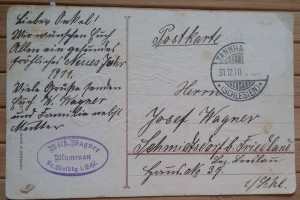 Lieber Onkel!
Wir wünschen Euch
Allen ein gesundes
fröhliches Neues Jahr
1911.
Viele Grüße senden
Euch W. Wagner
und Familie nebst
Mutter
Postkarte
TANNHAUSEN
31.12.10
(SCHLESIEN)
Herrn
Josef Wagner
Schmidtsdorf b. Friedland
Bez. Breslau
Haus No. 39
i/Schl.
Wilh. Wagner
Blumenau